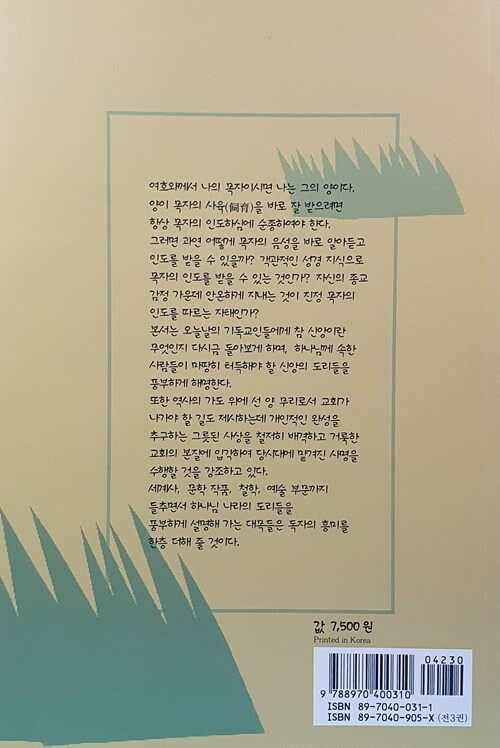 여호와께서 나의 목자이시면 나는 그의 양이다.
양이 목자의 사육(飼育)을 바로 잘 받으려면
항상 목자의 인도하심에 순종하여야 한다.
그러면 과연 어떻게 목자의 음성을 바로 알아듣고
인도를 받을 수 있을까? 객관적인 성경 지식으로
목자의 인도를 받을 수 있는 것인가? 자신의 종교
감정 가운데 안온하게 지내는 것이 진정 목자의
인도를 따르는 자태인가?
본서는 오늘날의 기독교인들에게 참 신앙이란
무엇인지 다시금 돌아보게 하며, 하나님께 속한
사람들이 마땅히 터득해야 할 신앙의 도리들을
풍부하게 해명한다.
또한 역사의 가도 위에 선 양 무리로서 교회가
나가야 할 길도 제시하는데 개인적인 완성을
추구하는 그릇된 사상을 철저히 배격하고 거룩한
교회의 본질에 입각하여 당시대에 맡겨진 사명을
수행할 것을 강조하고 있다.
세계사, 문학 작품, 철학, 예술 부문까지
들추면서 하나님 나라의 도리들을
풍부하게 설명해 가는 대목들은 독자의 흥미를
한층 더해 줄 것이다.
값 7,500원
Printed in Korea
04230
9 788970 400310
ISBN 89-7040-031-1
ISBN 89-7040-905-X (전3권)